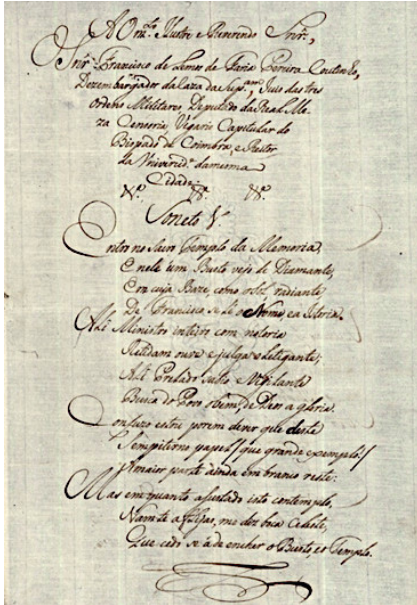 Ao Mᵗᵒ Ilustre e Reverendo Snr̃.,
Snr̃. Francisco de Lemos de Faria Pereira Coutinho,
Dezembargador da Caza da Sup.ᵃᵐ, Juis das tres
Ordens Militares Deputado da Real Me-
za Cençoria, Vigario Capitular do
Bispado de Coimbra, e Reitor
da Univercid.ᵉ damesma
Cidade.
Soneto V.
Entro no Sacro Templo da Memoria,
E nele um Busto vejo de Diamante,
Em cuja Baze, como o Sol radiante,
De Francisco se lê o Nome, e a Istoria.
Ali Ministro inteiro com notoria
Retidam ouve e julga o letigante;
Ali Prelado justo e Vigilante
Busca do Povo o bem, de Deos a gloria.
Confuzo estou porem de ver que deste
Sempiterno papel / que grande exemplo! /
A maior parte ainda em branco reste:
Mas em quanto asustado isto contemplo,
Nam te aflijas, me diz boca Celeste,
Que cedo se á de encher o Busto, e o Templo.